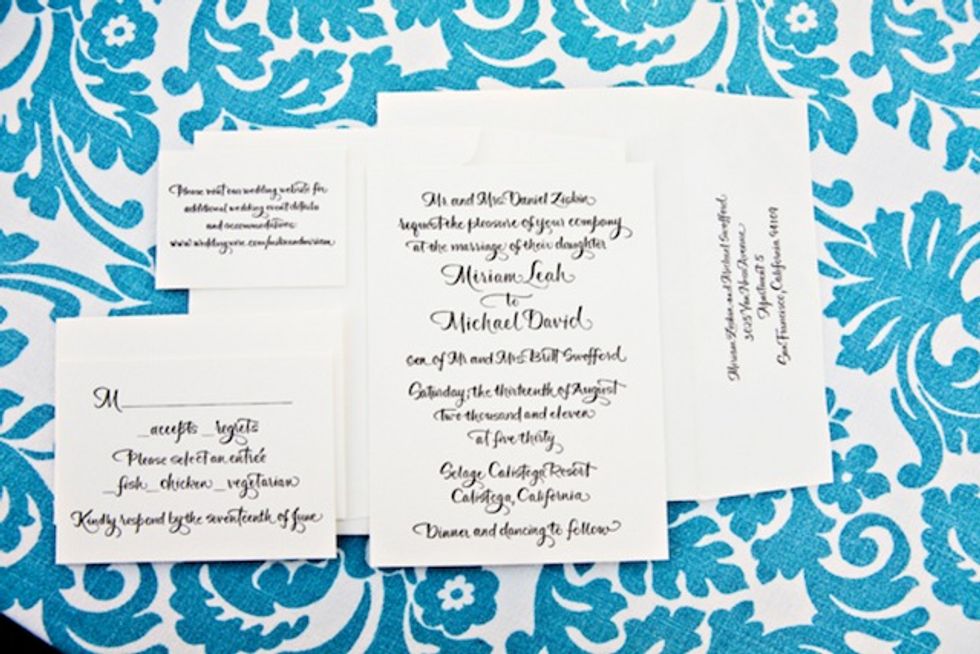 Please visit our wedding website for
additional wedding event details
and accommodations:
Mr and Mrs. Daniel Ziskin
request the pleasure of your company
at the marriage of their daughter
Miriam Leah
to
Michael David
son of Mr and Mrs. Britt Swofford
Saturday, the thirteenth of August
Two thousand and eleven
at five thirty
Solage Calistoga Resort
Calistoga, California
Dinner and dancing to follow
M
_accepts _regrets
Please select an entrée
_fish_chicken_vegetarian
Kindly respond by the seventeenth of June
Miriam Ziskin and Michael Swofford
3025 Van Ness Avenue
Apartment 5
San Francisco, California 94109